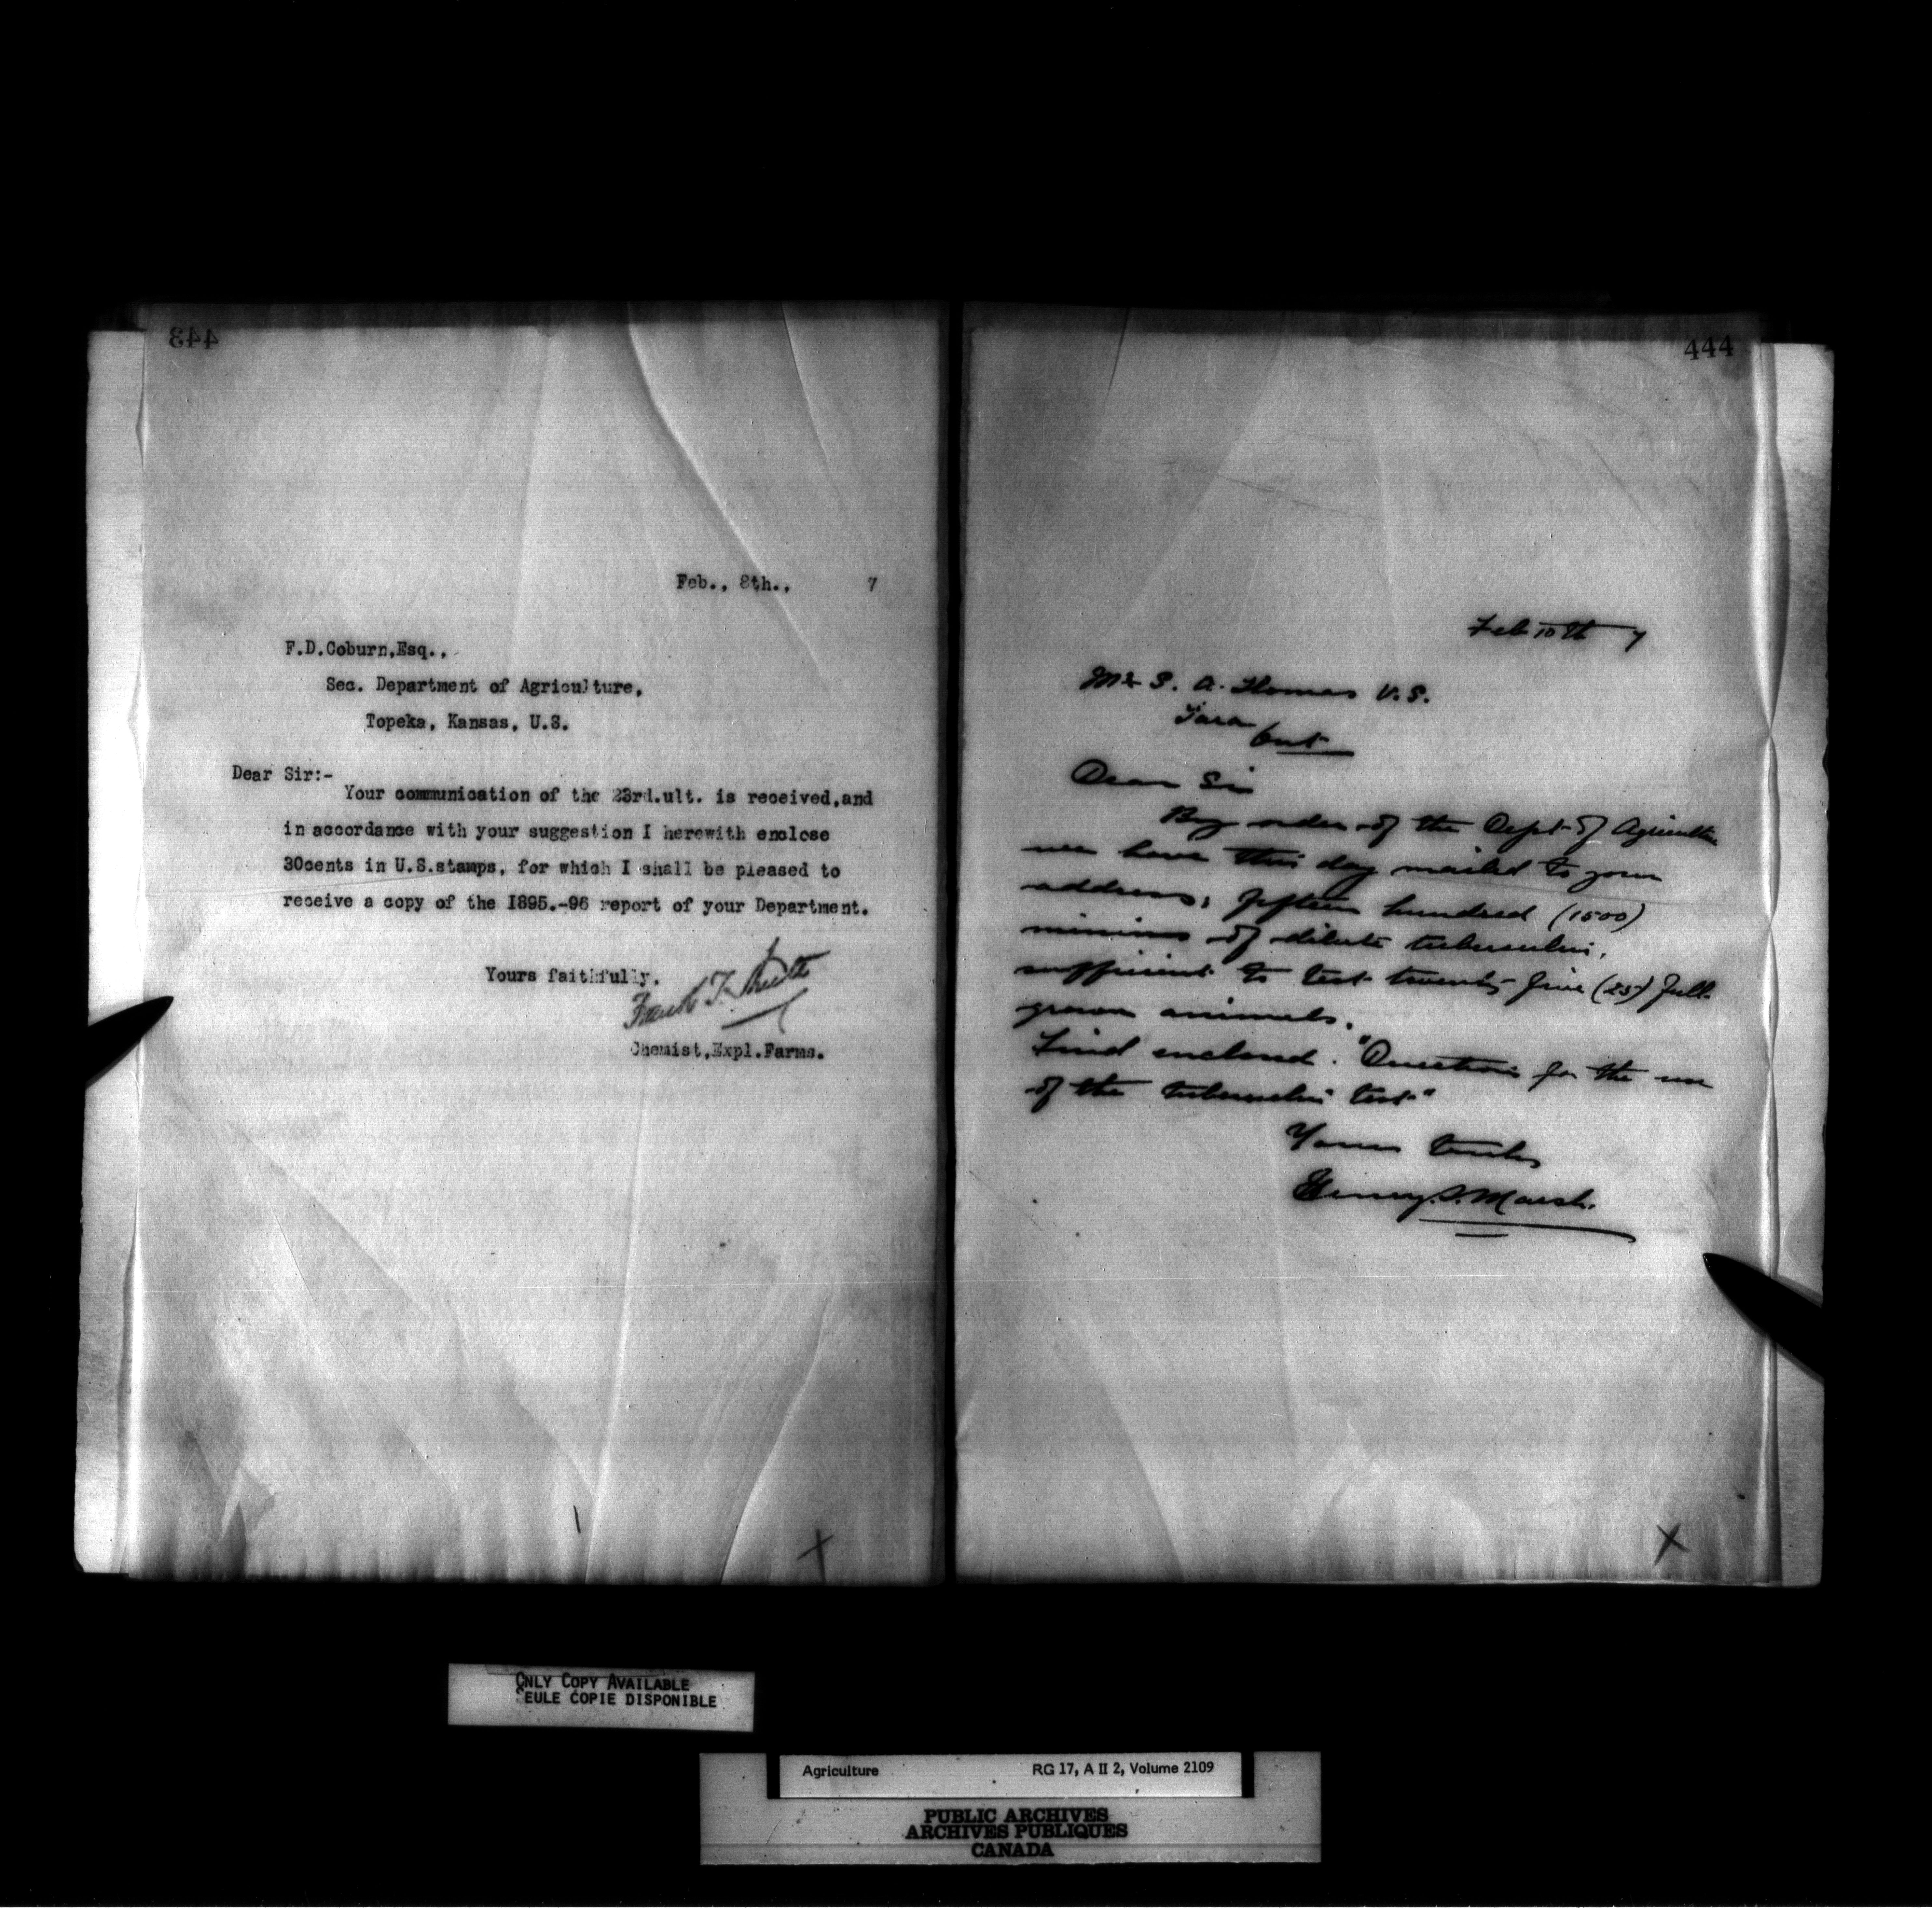 443
Feb., 8th., 7
F.D.Coburn,Esq.,
Sec. Department of Agriculture,
Topeka, Kansas, U.S.
Dear Sir:-
Your communication of the 23rd.ult. is received,and
in accordance with your suggestion I herewith enclose
30cents in U.S.stamps, for which I shall be pleased to
receive a copy of the 1895.-96 report of your Department.
Yours faithfully.
Frank T. Shutt
Chemist,Expl.Farms.
444
Feb 10th 7
Mr S. A. Thomas V.S.
Tara
Ont
Dear Sir
By order of the Dept of Agriculture
we have this day mailed to your
address, fifteen hundred (1500)
minims of dilute tuberculin,
sufficient to test twenty five (25) full
grown animals.
Find enclosed. "Directions for the use
of the tuberculin test"
Yours truly
Henry S. Marsh.
ONLY COPY AVAILABLE
SEULE COPIE DISPONIBLE
Agriculture RG 17, A II 2, Volume 2109
PUBLIC ARCHIVES
ARCHIVES PUBLIQUES
CANADA